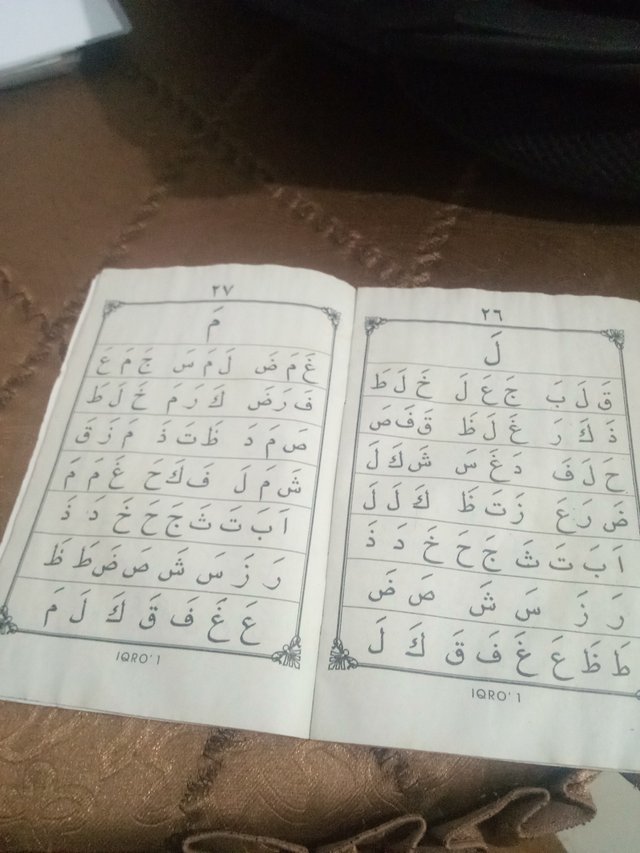 ٢٦
لَ
قَ لَ بَ جَ عَ لَ خَ لَ طَ
ذَ كَ رَ غَ لَ ظَ قَ فَ صَ
حَ لَ فَ دَ غَ سَ شَ كَ لَ
ضَ رَ عَ زَ تَ ظَ كَ لَ لَ
اَ بَ تَ ثَ جَ حَ خَ دَ ذَ
رَ زَ سَ شَ صَ ضَ
طَ ظَ عَ غَ فَ قَ كَ لَ
IQRO' 1
٢٧
مَ
غَ مَ ضَ لَ مَ سَ جَ مَ عَ
فَ رَ ضَ كَ رَ مَ خَ لَ طَ
صَ مَ دَ ظَ تَ ذَ مَ زَ قَ
شَ مَ لَ فَ كَ حَ غَ مَ مَ
اَ بَ تَ ثَ جَ حَ خَ دَ ذَ
رَ زَ سَ شَ صَ ضَ طَ ظَ
عَ غَ فَ قَ كَ لَ مَ
IQRO' 1